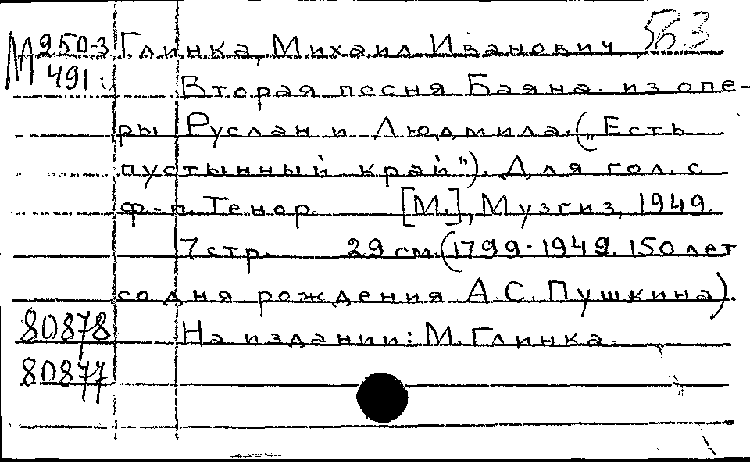 М 250-3 Глинка, Михаил Иванович 563
491 Вторая песня Баяна из опе-
ры Руслан и Людмила. („Есть
пустынный край"). Для гол. с
ф-п. Тенор. [М.], Музгиз, 1949.
7 стр. 29 см. (1799-1949. 150 лет
со дня рождения А.С. Пушкина).
80878 На издании: М. Глинка.
80877